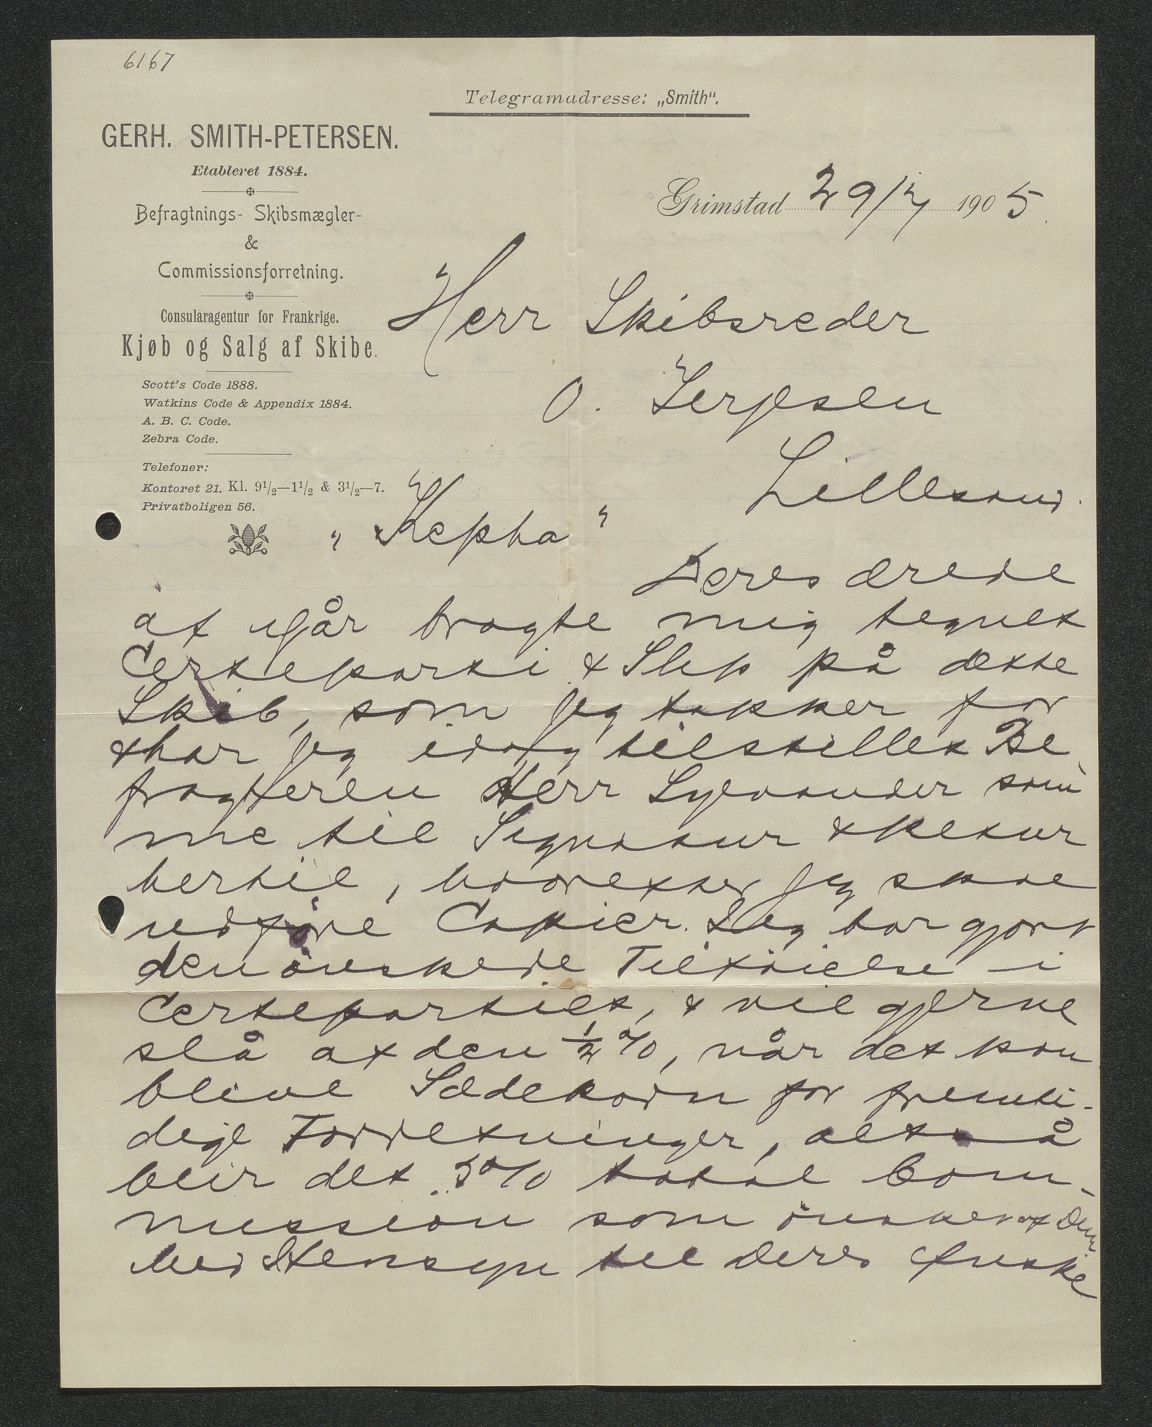 6167
Telegramadresse: „Smith“.
GERH. SMITH-PETERSEN.
Etableret 1884.
Befragtnings- Skibsmægler-
&
Commissionsforretning.
Consularagentur for Frankrige.
Kjøb og Salg af Skibe.
Scott's Code 1888.
Watkins Code & Appendix 1884.
A. B. C. Code.
Zebra Code.
Telefoner:
Kontoret 21. Kl. 9½—1½ & 3½—7.
Privatboligen 56.
Grimstad 29/7 1905.
Herr Skibsreder
O. Terjesen
Lillesand.
"Kepha"
Deres ærede
af igår bragte mig tegnet
Certeparti & Slip på dette
Skib, som jeg takker for
& har jeg idag tilstillet Be
fragteren Herr som
me til Signatur & Retur
hertil, hvorefter jeg skal
udføre Copier. Jeg har gjort
den ønskede Tilføielse i
Certepartiet, & vil gjerne
slå af den ½ %, når det kan
blive Sædekorn for fremti-
dige Forretninger, altså
blir det 5% total Com-
mission som ønsket af Dem.
Med Hensyn til Deres Ønske